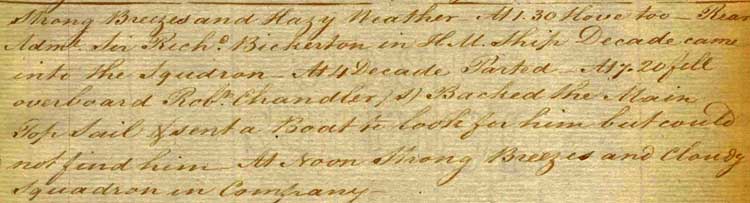 Strong Breezes and Hazy Weather - At 1.30 Hove too - Rear
Adml. Sir Richd. Bickerton in H.M. Ship Decade came
into the Squdron - At 4 Decade Parted - At 7.20 fell
overboard Robt. Chandler (S) Backed the Main
Top Sail & sent a Boat to look for him but could
not find him - At Noon Strong Breezes and Cloudy
Squadron in Company -